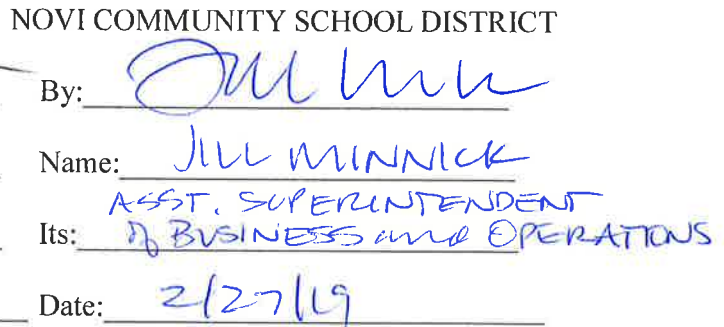 NOVI COMMUNITY SCHOOL DISTRICT
By:
Name: JILL MINNICK
ASST. SUPERINTENDENT
Its: of BUSINESS and OPERATIONS
Date: 2/27/19